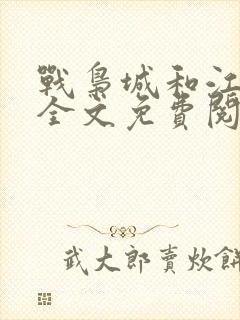 戰梟城和江
全文免費閱
武大郎賣炊餅